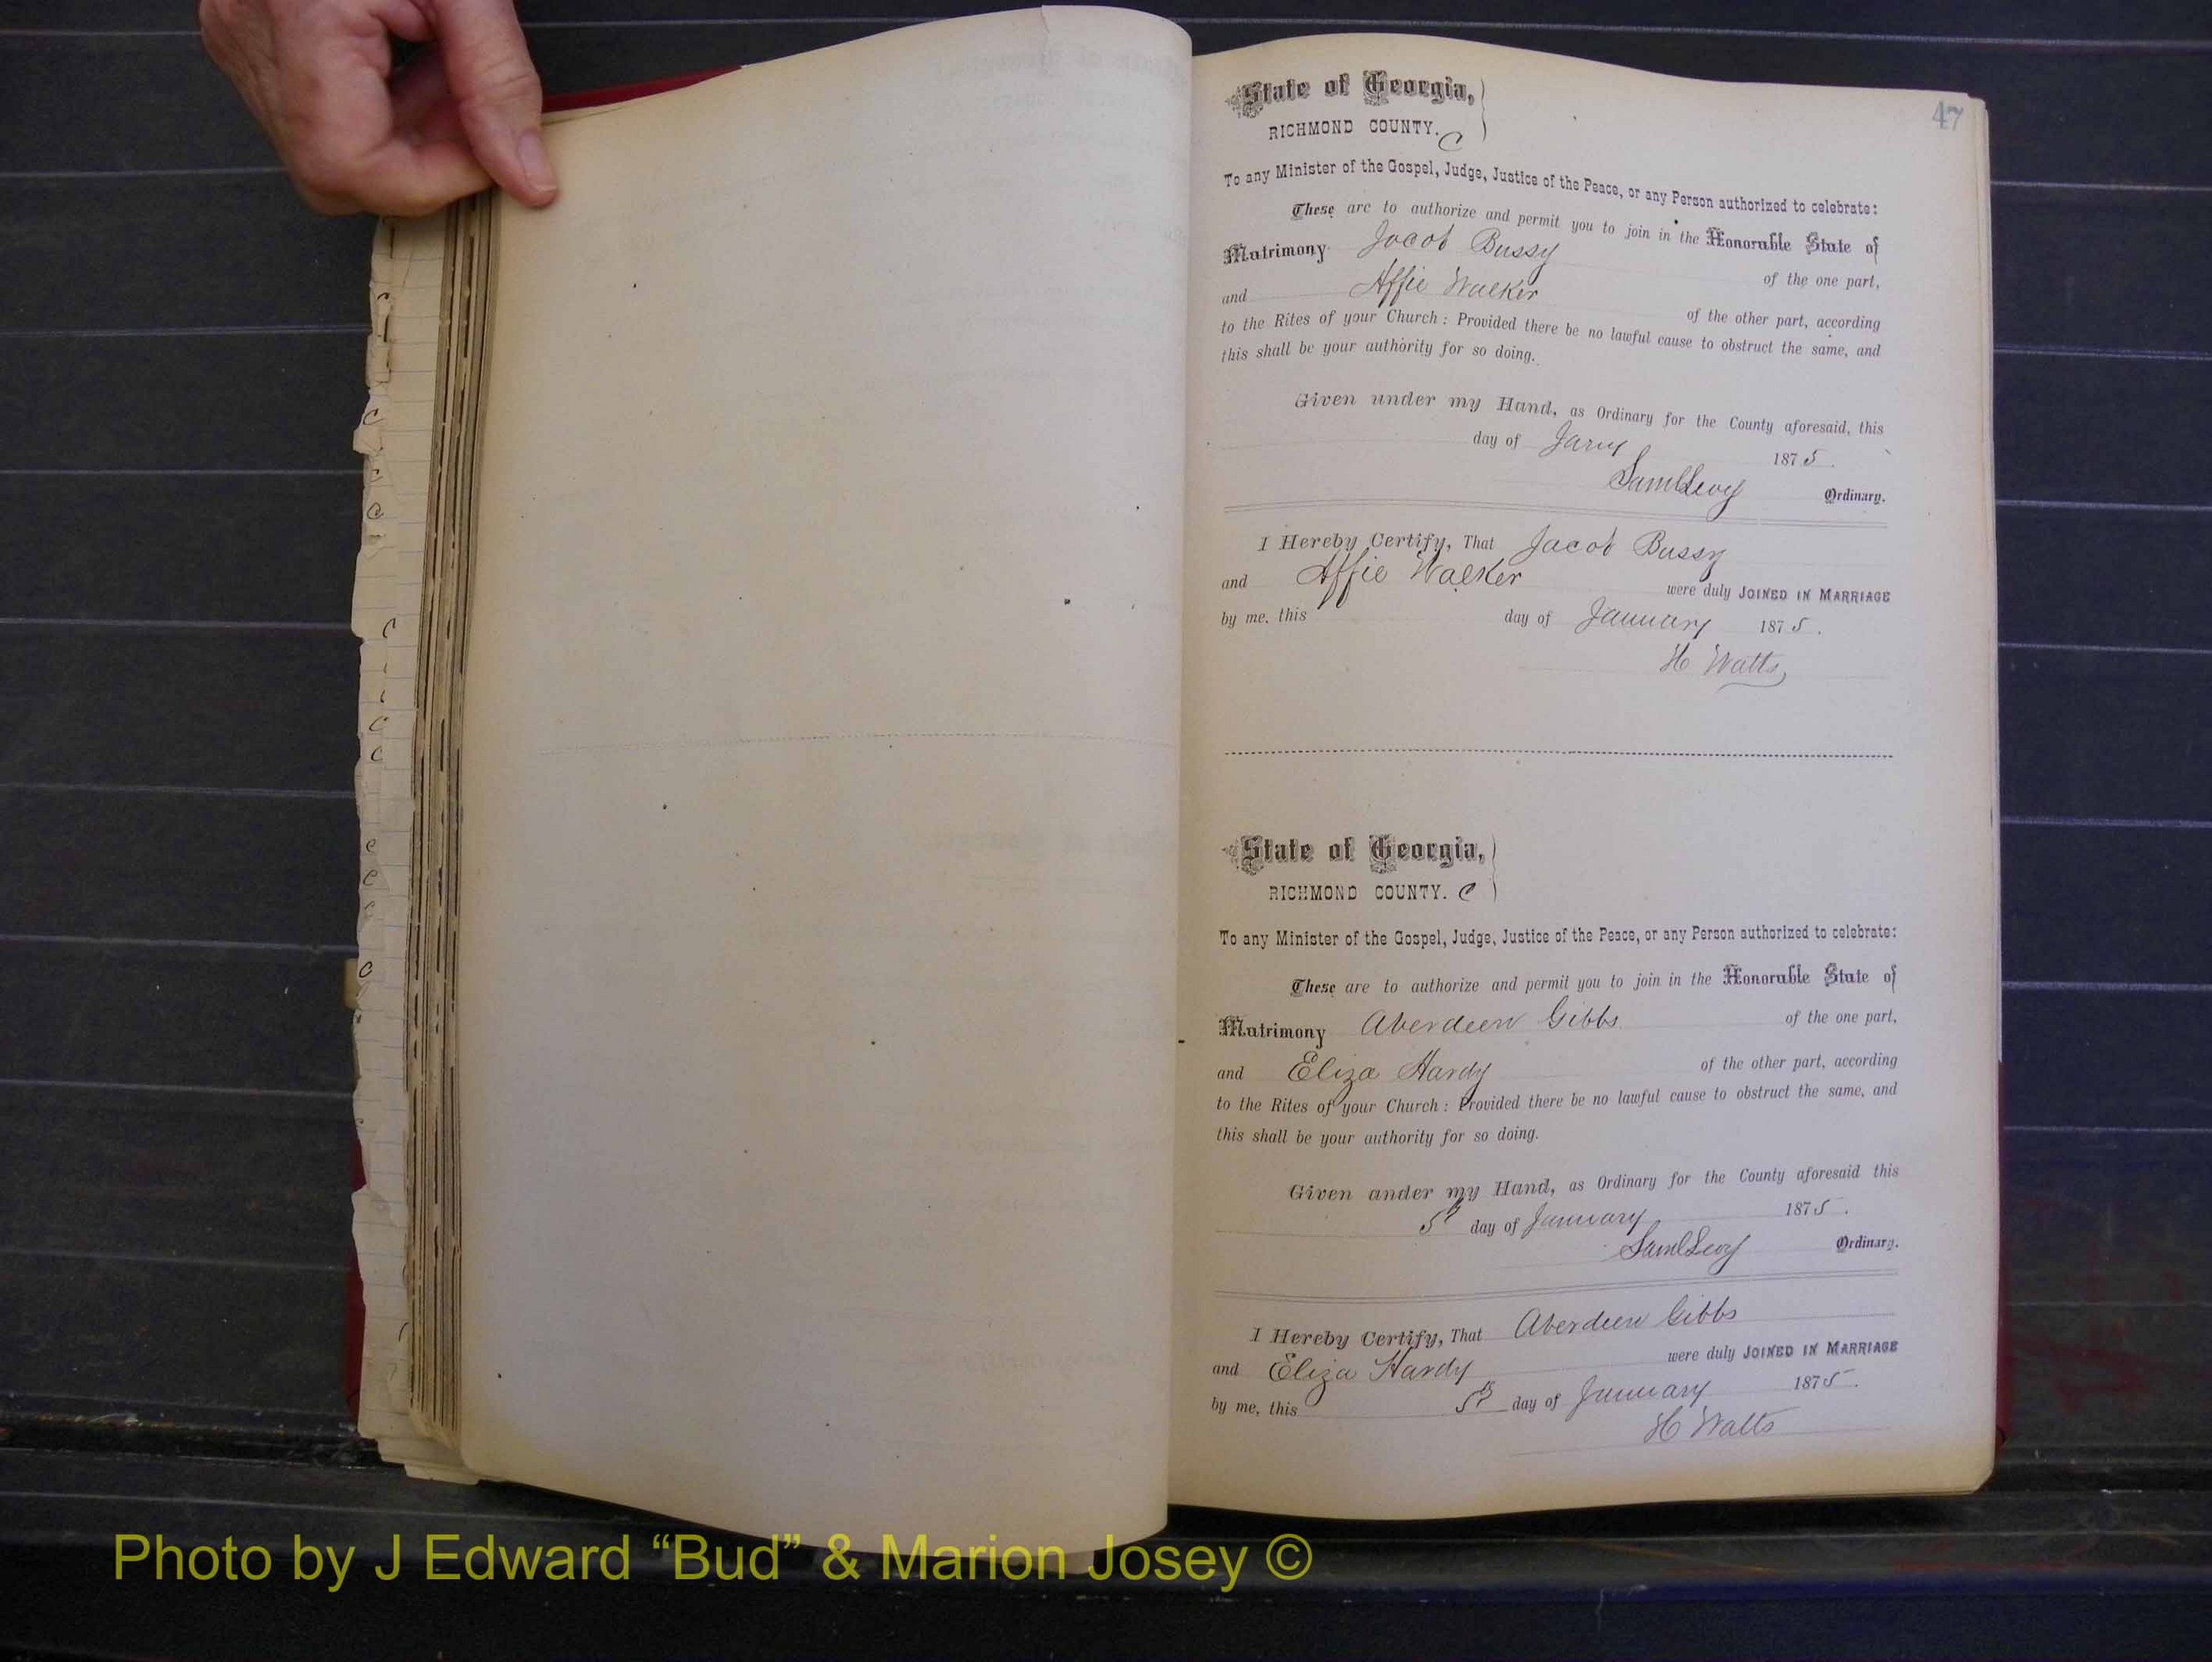 47
State of Georgia,
RICHMOND COUNTY. C
To any Minister of the Gospel, Judge, Justice of the Peace, or any Person authorized to celebrate:
These are to authorize and permit you to join in the Honorable State of
Matrimony Jacob Bussy of the one part,
and Affie Walker of the other part, according
to the Rites of your Church: Provided there be no lawful cause to obstruct the same, and
this shall be your authority for so doing.
Given under my Hand, as Ordinary for the County aforesaid, this
day of Jany 1875.
Saml Levy Ordinary.
I Hereby Certify, That Jacob Bussy
and Affie Walker were duly JOINED IN MARRIAGE
by me, this day of January 1875.
H Watts
State of Georgia,
RICHMOND COUNTY. C
To any Minister of the Gospel, Judge, Justice of the Peace, or any Person authorized to celebrate:
These are to authorize and permit you to join in the Honorable State of
Matrimony Aberdeen Gibbs of the one part,
and Eliza Hardy of the other part, according
to the Rites of your Church: Provided there be no lawful cause to obstruct the same, and
this shall be your authority for so doing.
Given under my Hand, as Ordinary for the County aforesaid this
5th day of January 1875.
Saml Levy Ordinary.
I Hereby Certify, That Aberdeen Gibbs
and Eliza Hardy were duly JOINED IN MARRIAGE
by me, this 5th day of January 1875.
H Watts
Photo by J Edward “Bud” & Marion Josey ©